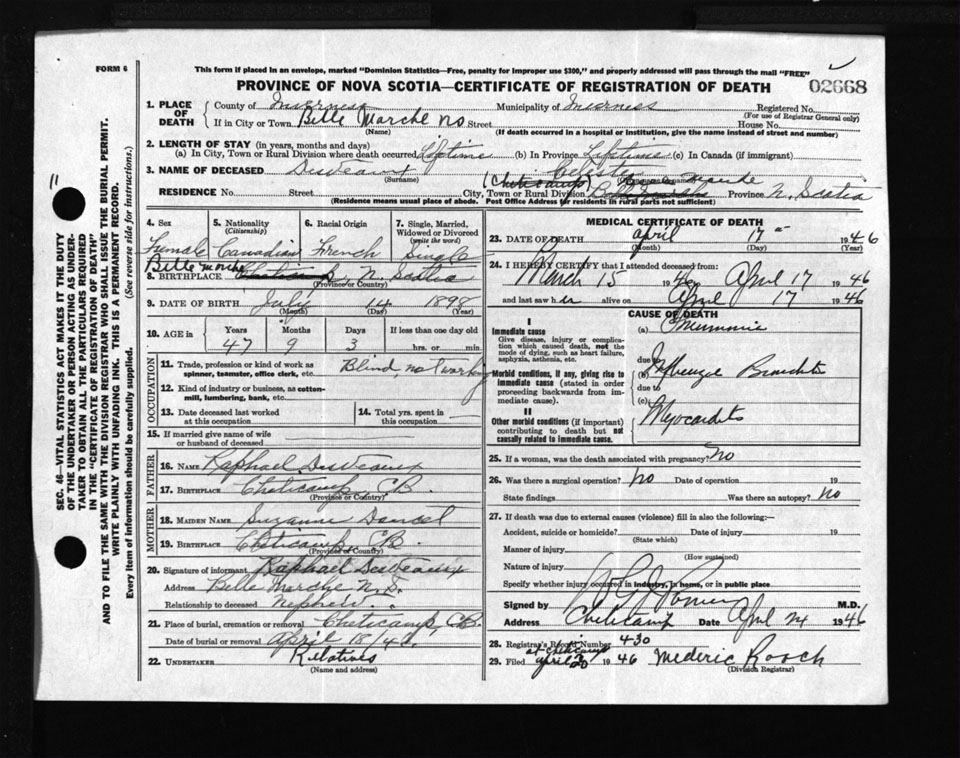 FORM 6
This form if placed in an envelope, marked "Dominion Statistics—Free, penalty for improper use $300," and properly addressed will pass through the mail "FREE"
PROVINCE OF NOVA SCOTIA—CERTIFICATE OF REGISTRATION OF DEATH
02668
1. PLACE OF DEATH
County of Inverness Municipality of Inverness Registered No.
(For use of Registrar General only)
If in City or Town Belle Marche No Street House No.
(Name) (If death occurred in a hospital or institution, give the name instead of street and number)
2. LENGTH OF STAY (in years, months and days)
(a) In City, Town or Rural Division where death occurred Lifetime (b) In Province Lifetime (c) In Canada (if immigrant)
3. NAME OF DECEASED Desveaux Celeste
(Surname)
RESIDENCE No. Street City, Town or Rural Division (Cheticamp) Province N. Scotia
(Residence means usual place of abode. Post Office Address for residents in rural parts not sufficient)
4. Sex
Female
5. Nationality
(Citizenship)
Canadian
6. Racial Origin
French
7. Single, Married, Widowed or Divorced
(write the word)
Single
Belle Marche
8. BIRTHPLACE Cheticamp N. Scotia
(Province or Country)
9. DATE OF BIRTH July 14 1898
(Month) (Day) (Year)
10. AGE in Years Months Days If less than one day old
47 9 3 hrs. or min.
OCCUPATION
11. Trade, profession or kind of work as spinner, teamster, office clerk, etc. Blind not working
12. Kind of industry or business, as cotton-mill, lumbering, bank, etc.
13. Date deceased last worked at this occupation
14. Total yrs. spent in this occupation
15. If married give name of wife or husband of deceased
FATHER
16. Name Raphael Desveaux
17. Birthplace Cheticamp CB.
(Province or Country)
MOTHER
18. Maiden Name Suzanne Doucet
19. Birthplace Cheticamp CB.
(Province or Country)
20. Signature of informant Raphael Desveaux
Address Belle Marche N.S.
Relationship to deceased Nephew
21. Place of burial, cremation or removal Cheticamp, CB.
Date of burial or removal April 18/46.
22. Undertaker Relatives
(Name and address)
MEDICAL CERTIFICATE OF DEATH
23. DATE OF DEATH April 17 1946
(Month) (Day) (Year)
24. I HEREBY CERTIFY that I attended deceased from:
March 15 1946 to April 17 1946
and last saw her alive on April 17 1946
CAUSE OF DEATH
I
Immediate cause
Give disease, injury or complication which caused death, not the mode of dying, such as heart failure, asphyxia, asthenia, etc.
(a)
due to
Morbid conditions, if any, giving rise to immediate cause (stated in order proceeding backwards from immediate cause).
(b)
due to
(c)
II
Other morbid conditions (if important) contributing to death but not causally related to immediate cause.
Myocarditis
25. If a woman, was the death associated with pregnancy? No
26. Was there a surgical operation? No Date of operation 19
State findings Was there an autopsy? No
27. If death was due to external causes (violence) fill in also the following:—
Accident, suicide or homicide? Date of injury 19
(State which)
Manner of injury
(How sustained)
Nature of injury
Specify whether injury occurred in industry, in home, or in public place
Signed by M.D.
Address Cheticamp Date April 24 1946
28. Registrar's Record Number 430
at Cheticamp
29. Filed April 20 1946 Mederic Roach
(Division Registrar)
SEC. 46—VITAL STATISTICS ACT MAKES IT THE DUTY
OF THE UNDERTAKER OR PERSON ACTING AS UNDER-
TAKER TO OBTAIN ALL THE PARTICULARS REQUIRED
IN THE "CERTIFICATE OF REGISTRATION OF DEATH"
AND TO FILE THE SAME WITH THE DIVISION REGISTRAR WHO SHALL ISSUE THE BURIAL PERMIT.
WRITE PLAINLY WITH UNFADING INK. THIS IS A PERMANENT RECORD.
Every item of information should be carefully supplied. (See reverse side for instructions.)